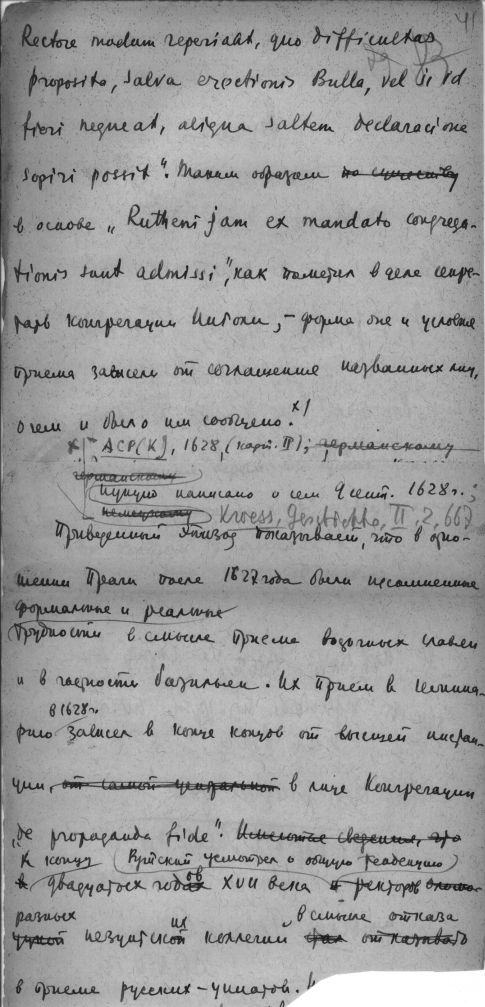 41
Rectore modum reperiant, quo difficultas
proposito, salva erectionis Bulla, vel si id
fieri nequeat, aliqua saltem declaracione
sopiri possit". Таким образом по существу
в основе „Rutheni jam ex mandato congrega-
tionis sunt admissi", как пометил в деле секре-
тарь Конгрегации Инголи, – форма же и условие
приема зависели от соглашение названных лиц,
о чем и было им сообщено. x)
x) АСР(К), 1628, (карт. II); германскому
германскому
нунцию написано о сем 9 сент. 1628 г.;
немецкому Kroess, Geschichte, II, 2, 667
Приведенный эпизод показывает, что в отно-
шении Праги после 1627 года были несомненные
формальные и реальные
трудности в смысле приема восточных славян
и в частности базильян. Их прием в семина-
в 1628 г.
рию зависел в конце концов от высшей инстан-
ции, от самой центральной в лице Конгрегации
„de propaganda fide". Имеются сведения, что
К концу Рутский усмотрел и общую тенденцию
двадцатых годов XVII века и ректоров
разных их в смысле отказа
иезуитской коллегии отказывать
в приеме русских-униатов.